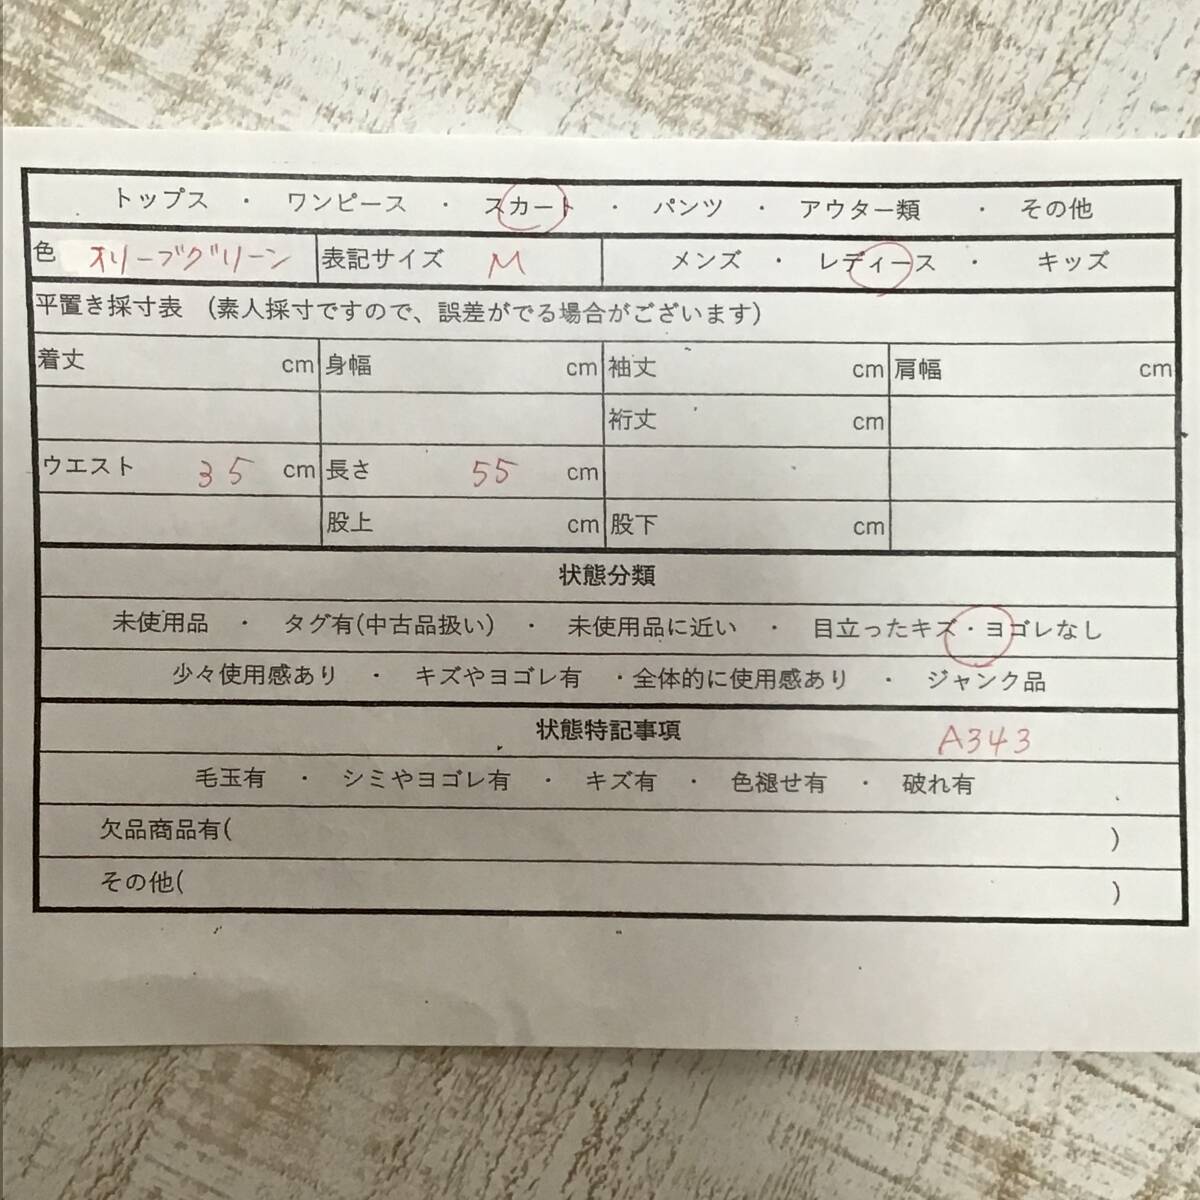 トップス ・ ワンピース ・ スカート ・ パンツ ・ アウター類 ・ その他
色 オリーブグリーン 表記サイズ M メンズ ・ レディース ・ キッズ
平置き採寸表 (素人採寸ですので、誤差がでる場合がございます)
着丈 cm 身幅 cm 袖丈 cm 肩幅 cm
裄丈 cm
ウエスト 35 cm 長さ 55 cm
股上 cm 股下 cm
状態分類
未使用品 ・ タグ有(中古品扱い) ・ 未使用品に近い ・ 目立ったキズ・ヨゴレなし
少々使用感あり ・ キズやヨゴレ有 ・全体的に使用感あり ・ ジャンク品
状態特記事項 A343
毛玉有 ・ シミやヨゴレ有 ・ キズ有 ・ 色褪せ有 ・ 破れ有
欠品商品有( )
その他( )